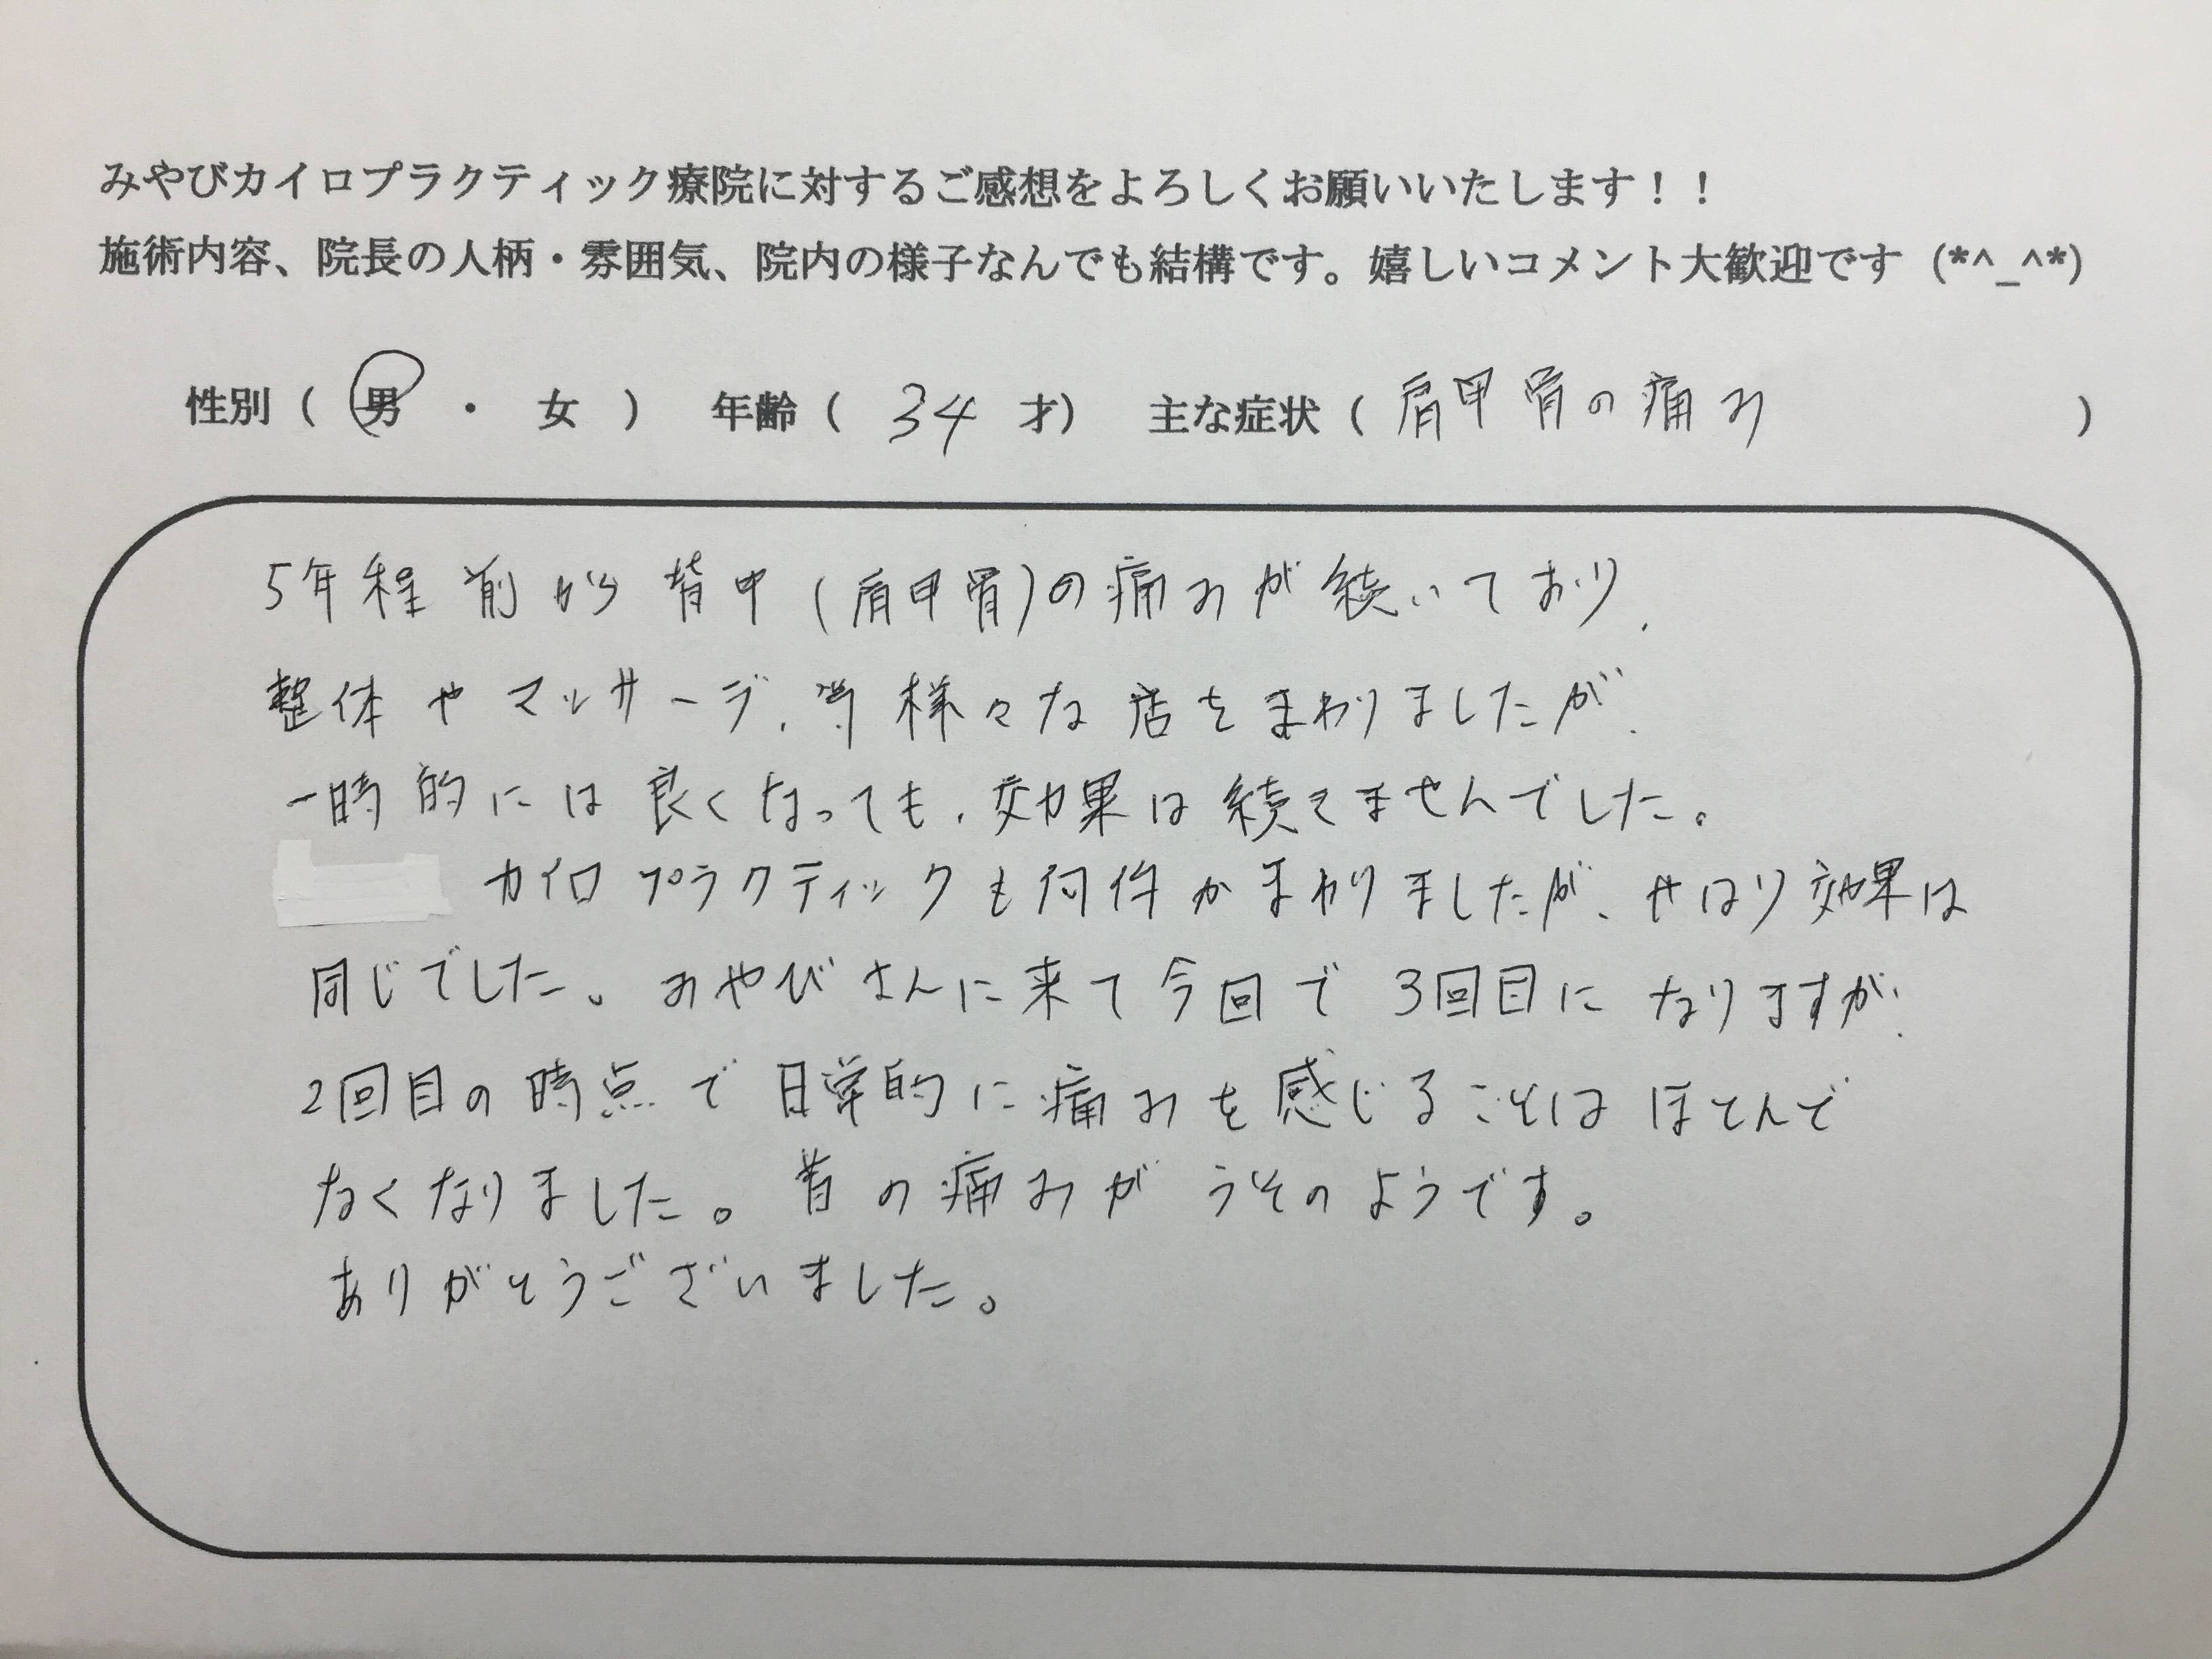 みやびカイロプラクティック療院に対するご感想をよろしくお願いいたします！！
施術内容、院長の人柄・雰囲気、院内の様子なんでも結構です。嬉しいコメント大歓迎です (*^_^*)
性別（ 男 ・ 女 ） 年齢（ 34 才） 主な症状（ 肩甲骨の痛み ）
5年程前から背中(肩甲骨)の痛みが続いており、
整体やマッサージ、等様々な店をまわりましたが、
一時的には良くなっても、効果は続きませんでした。
カイロプラクティックも何件かまわりましたが、やはり効果は
同じでした。みやびさんに来て今回で3回目になりますが、
2回目の時点で日常的に痛みを感じることはほとんど
なくなりました。昔の痛みがうそのようです。
ありがとうございました。